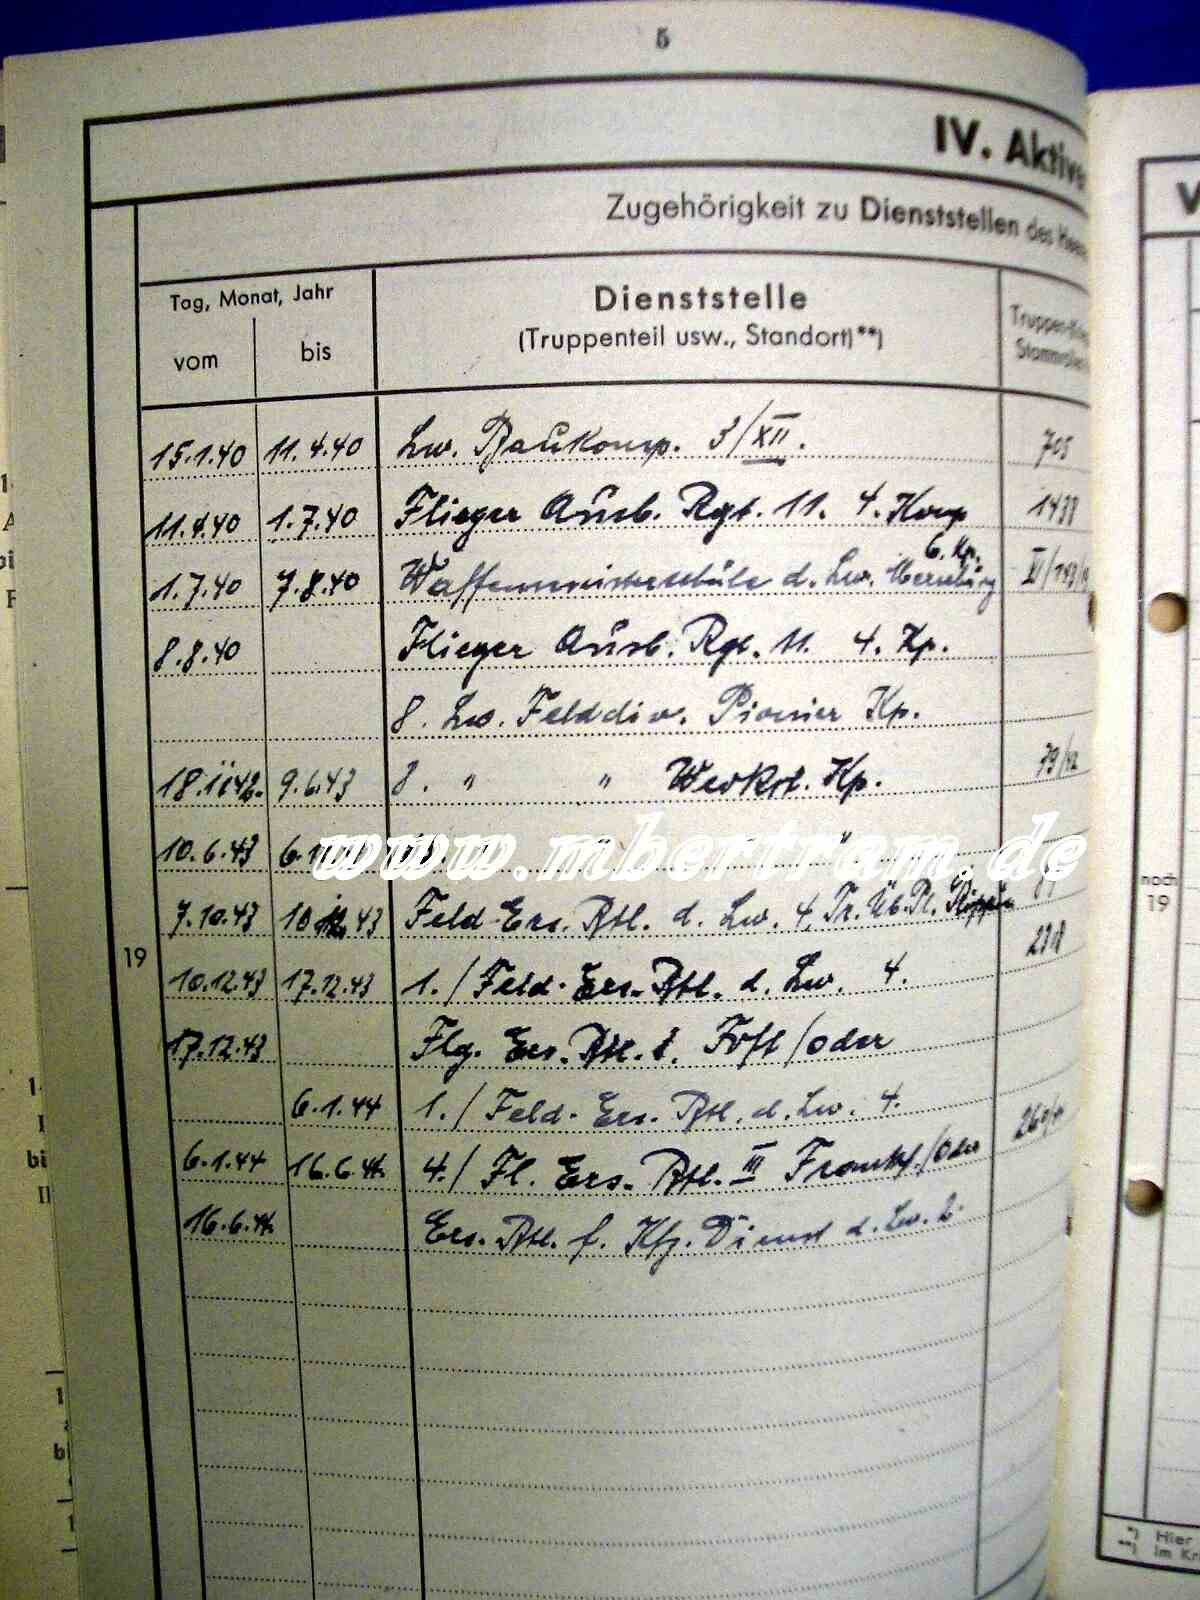 5
IV. Aktive
Zugehörigkeit zu Dienststellen des Heeres
Tag, Monat, Jahr
vom bis
Dienststelle
(Truppenteil usw., Standort)**)
Truppen-
Stammrollen
15.1.40 11.4.40 Lw. Baukomp. 3/XII. 705
11.4.40 1.7.40 Flieger Ausb. Rgt. 11. 4. Komp
6. Kp.
1.7.40 7.8.40 Waffenmeisterschule d. Lw. Merseburg
8.8.40 Flieger Ausb. Rgt. 11. 4. Kp.
8. Lw. Felddiv. Pionier Kp.
18.11.42. 9.6.43 8. " " Werkst. Kp. 79/42
10.6.43
www.mbertram.de
7.10.43 43 Feld-Ers. Btl. d. Lw. 4, Tr. Üb. Pl.
19
10.12.43 17.12.43 1./Feld-Ers. Btl. d. Lw. 4.
17.12.43 Flg. Ers. Btl. Frft/Oder
6.1.44 1./Feld-Ers. Btl. d. Lw. 4.
6.1.44 16.6.44. 4./Fl. Ers. Btl. III Frankf./Oder
16.6.44. Ers. Btl. f. Kfz. Dienst d. Lw. 2.
noch
19
Hier
im Kr